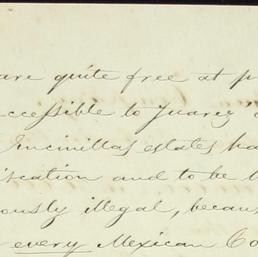 are quite free at p
accessible to Juarez'
Encinillas estates ha
iscation and to be
ously illegal, becaus
every Mexican Co